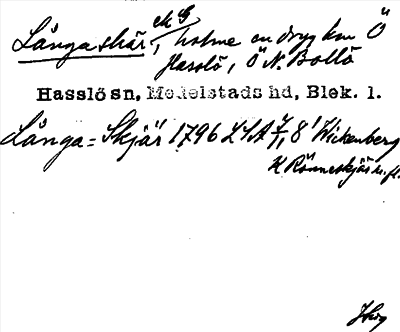 Långaskär, ek G holme en dryg km Ö
Hasslö, Ö N. Bollö
Hasslö sn, Medelstads hd, Blek. l.
Långa = Skjär 1796 LSA 7/1, 8' Wickenberg
K Rönneskjär m. fl.